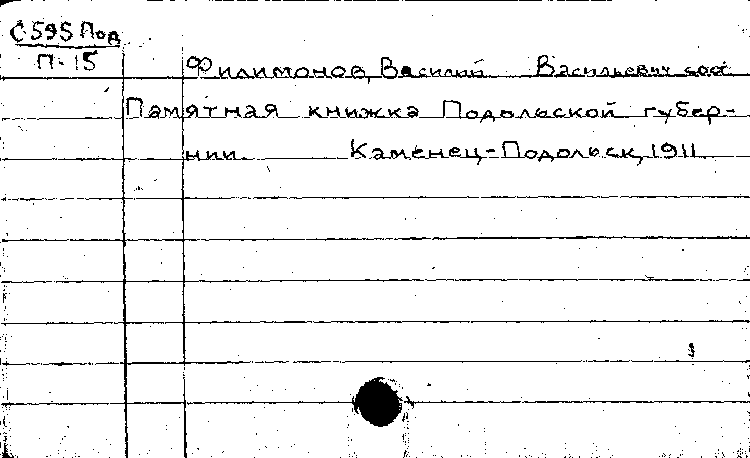 С595 Под
П-15
Филимонов, Василий Васильевич сост.
Памятная книжка Подольской губер-
нии. Каменец-Подольск, 1911